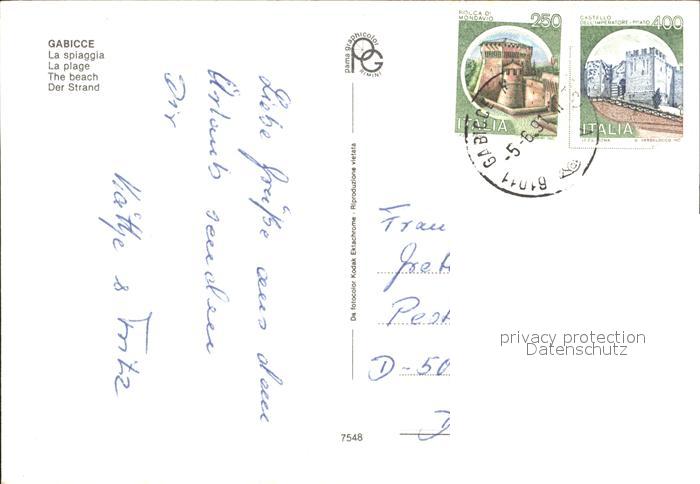 GABICCE
La spiaggia
La plage
The beach
Der Strand
Liebe Grüße aus dem
Urlaub senden
Dir
Käthe & Fritz
pama graphicolor
PG
RIMINI
Da fotocolor Kodak Ektachrome - Riproduzione vietata
7548
ROCCA DI
MONDAVIO
250
ITALIA
CASTELLO
DELL'IMPERATORE - PRATO
400
ITALIA
61011 GABICCE
-5-6.91
Frau
Gret
Pest
D-50
D
privacy protection
Datenschutz